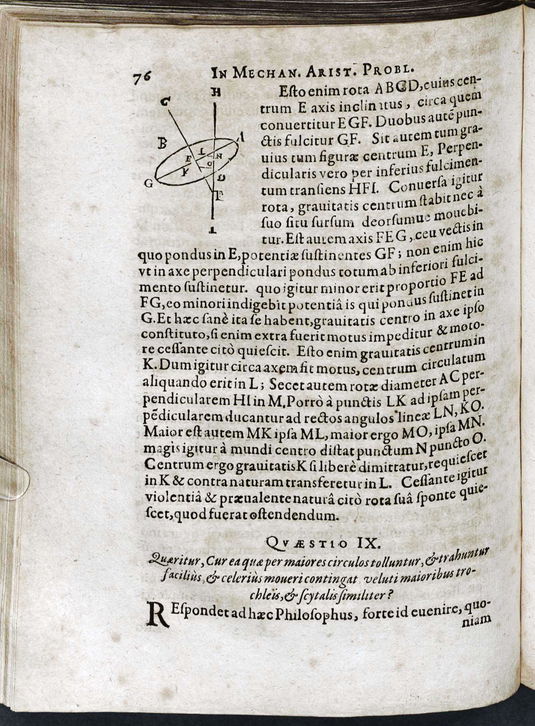 76 IN MECHAN. ARIST. PROBL.
H
C
B
A
L
E
N
F
O
D
G
F
I
Esto enim rota ABCD, cuius cen-
trum E axis inclinatus, circa quem
conuertitur EGF. Duobus autē pun-
ctis fulcitur GF. Sit autem tum gra-
uius tum figuræ centrum E, Perpen-
dicularis vero per inferius fulcimen-
tum transiens HFI. Conuersa igitur
rota, grauitatis centrum stabit nec à
suo situ sursum deorsumue mouebi-
tur. Est autem axis FEG, ceu vectis in
quo pondus in E, potentiæ sustinentes GF; non enim hic
vt in axe perpendiculari pondus totum ab inferiori fulci-
mento sustinetur. quo igitur minor erit proportio FE ad
FG, eo minori indigebit potentiâ is qui pondus sustinet in
G. Et hæc sanè ita se habent, grauitatis centro in axe ipso
constituto, si enim extra fuerit motus impeditur & moto-
re cessante citò quiescit. Esto enim grauitatis centrum in
K. Dum igitur circa axem fit motus, centrum circulatum
aliquando erit in L; Secet autem rotæ diameter AC per-
pendicularem HI in M, Porrò à punctis LK ad ipsam per-
pēdicularem ducantur ad rectos angulos lineæ LN, KO.
Maior est autem MK ipsa ML, maior ergo MO, ipsa MN.
magis igitur à mundi centro distat punctum N puncto O.
Centrum ergo grauitatis K si liberè dimittatur, requiescet
in K & contra naturam transferetur in L. Cessante igitur
violentiâ & præualente naturâ citò rota suâ sponte quie-
scet, quod fuerat ostendendum.
QVÆSTIO IX.
Quæritur, Cur ea quæ per maiores circulos tolluntur, & trahuntur
facilius, & celeriùs moueri contingat, veluti maioribus tro-
chleis, & scytalis similiter?
REspondet ad hæc Philosophus, forte id euenire, quo-
niam